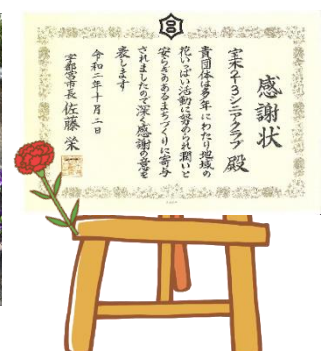 感謝状
宝木2の3シニアクラブ 殿
貴団体は多年にわたり地域の
花いっぱい活動に努められ潤いと
安らぎのあるまちづくりに寄与
されましたので深く感謝の意を
表します
令和二年十月二日
宇都宮市長 佐藤栄